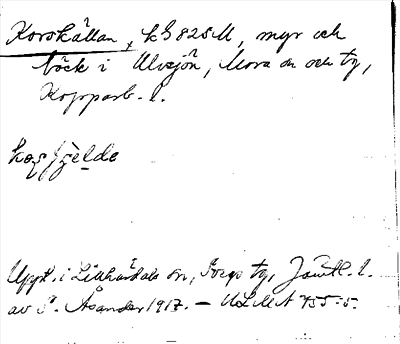 Korskällan, k § 825 M, myr och
bäck i Ulvsjön, Mora sn och tg,
Kopparb. l.
Uppt. i Lillhärdals sn, tg, Jämtl. l.
av S. Åsander 1917. — ULMA 455:5.